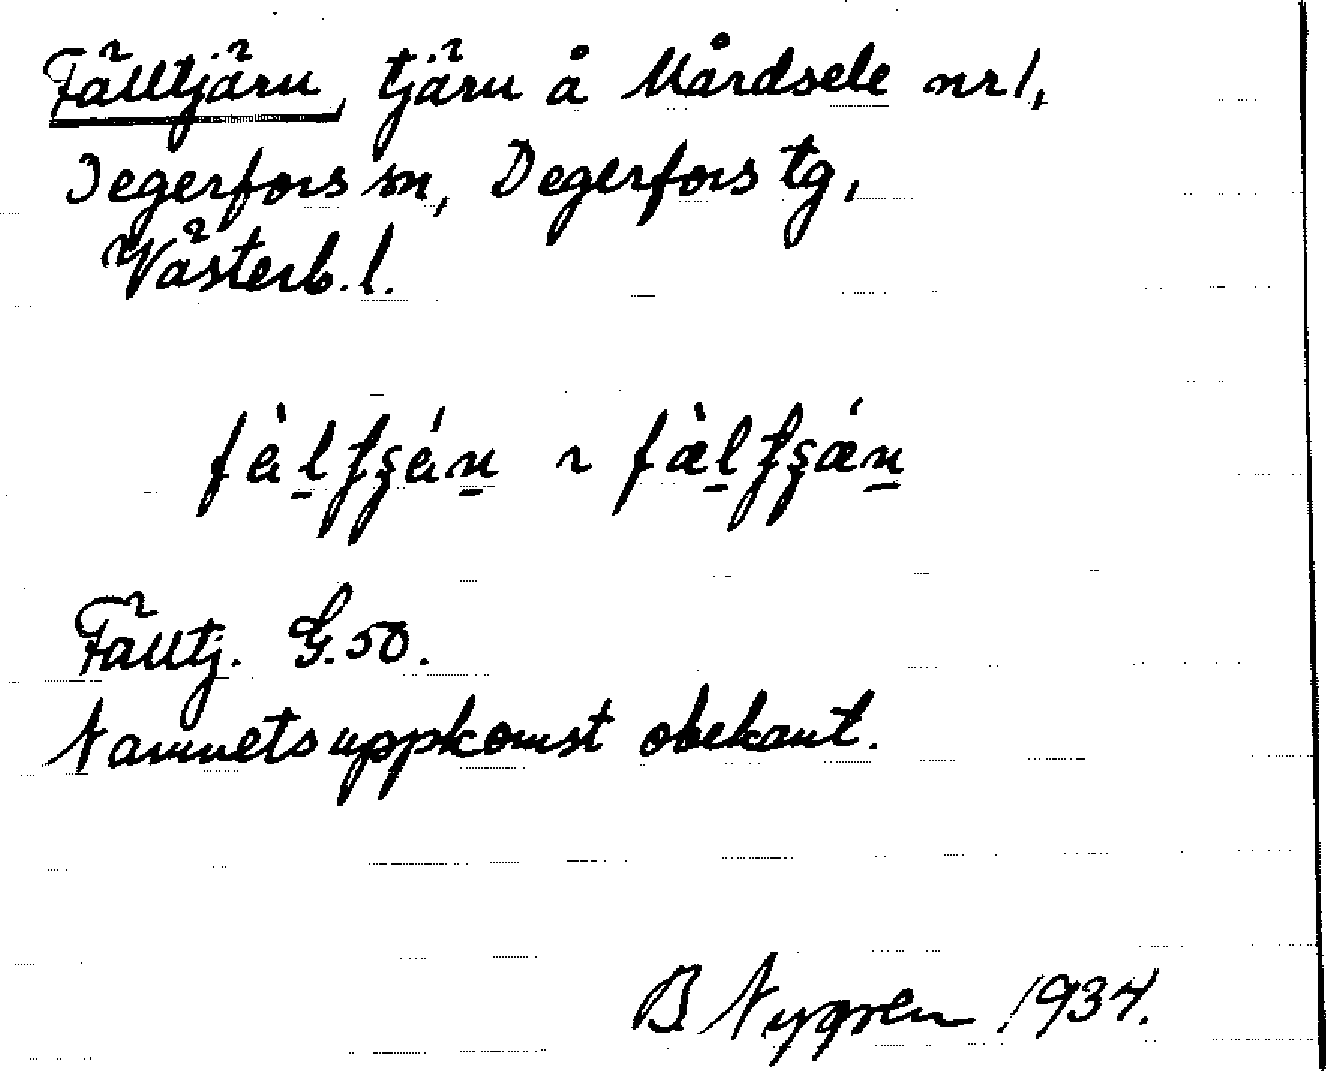 Fälltjärn, tjärn å Mårdsele nr 1,
Degerfors sn, Degerfors tg,
Västerb. l.
Fälltj. G. 50.
Namnets uppkomst obekant.
B. Nygren 1934.